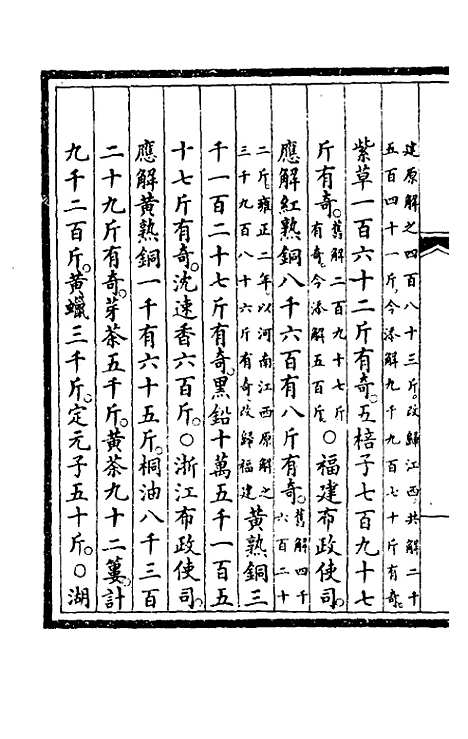 建原解之四百八十三斤。改歸江西共解二千
五百四十一斤。今添解九千九百七十斤有奇。
紫草一百六十二斤有奇。五棓子七百九十七
斤有奇。舊解二百九十七斤
有奇。今添解五百斤。○福建布政使司。
應解紅熟銅八千六百有八斤有奇。舊解四千
六百二十
二斤。雍正二年。以河南江西原解之
三千九百八十六斤有奇改歸福建黃熟銅三
千一百二十七斤有奇。黑鉛十萬五千一百五
十七斤有奇。沈速香六百斤。○浙江布政使司。
應解黃熟銅一千有六十五斤。桐油八千三百
二十九斤有奇。芽茶五千斤。黃茶九十二簍。計
九千二百斤。黃蠟三千斤。定元子五十斤。○湖